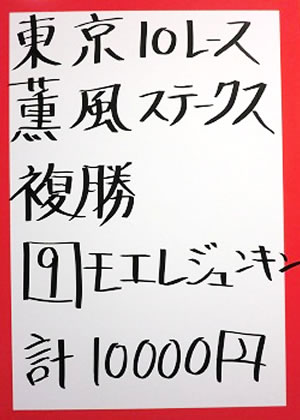 東京10レース
薫風ステークス
複勝
9モエレジュンキン
計10000円